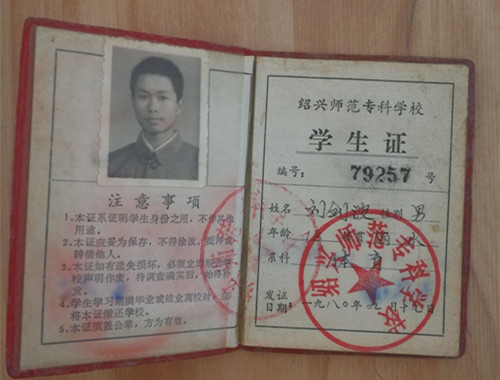 注意事项
1.本证系证明学生身份之用,不作其他
用途。
2.本证应妥为保存,不得涂改、抵押或
转借他人。
3.本证如有遗失损坏,必须立即
校声明作废,待调查确实后,始得补
发。
4.学生学习期满毕业或结业离校时,
将本证缴还学校。
5.本证须盖公章,方为有效。
绍兴师范专科学校
学生证
编号: 79257 号
姓名 刘剑波 性别 男
年龄 18
系科 体育
发证
日期: 一九八〇年 月 日
绍兴师范专科学校